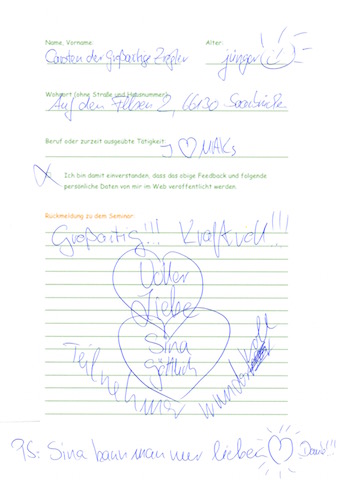 Name, Vorname: Alter:
Carsten der Großartige Ziegler jünger
Wohnort (ohne Straße und Hausnummer):
Auf den Felsen 2, 66130 Saarbrücken
Beruf oder zurzeit ausgeübte Tätigkeit:
I ♡ MAKs
X Ich bin damit einverstanden, dass das obige Feedback und folgende
persönliche Daten von mir im Web veröffentlicht werden.
Rückmeldung zu dem Seminar:
Großartig!!! Kraftvoll!!!
Voller
Liebe
Sina
göttlich
Teilnehmer wundervoll
PS: Sina kann man nur lieben ♡